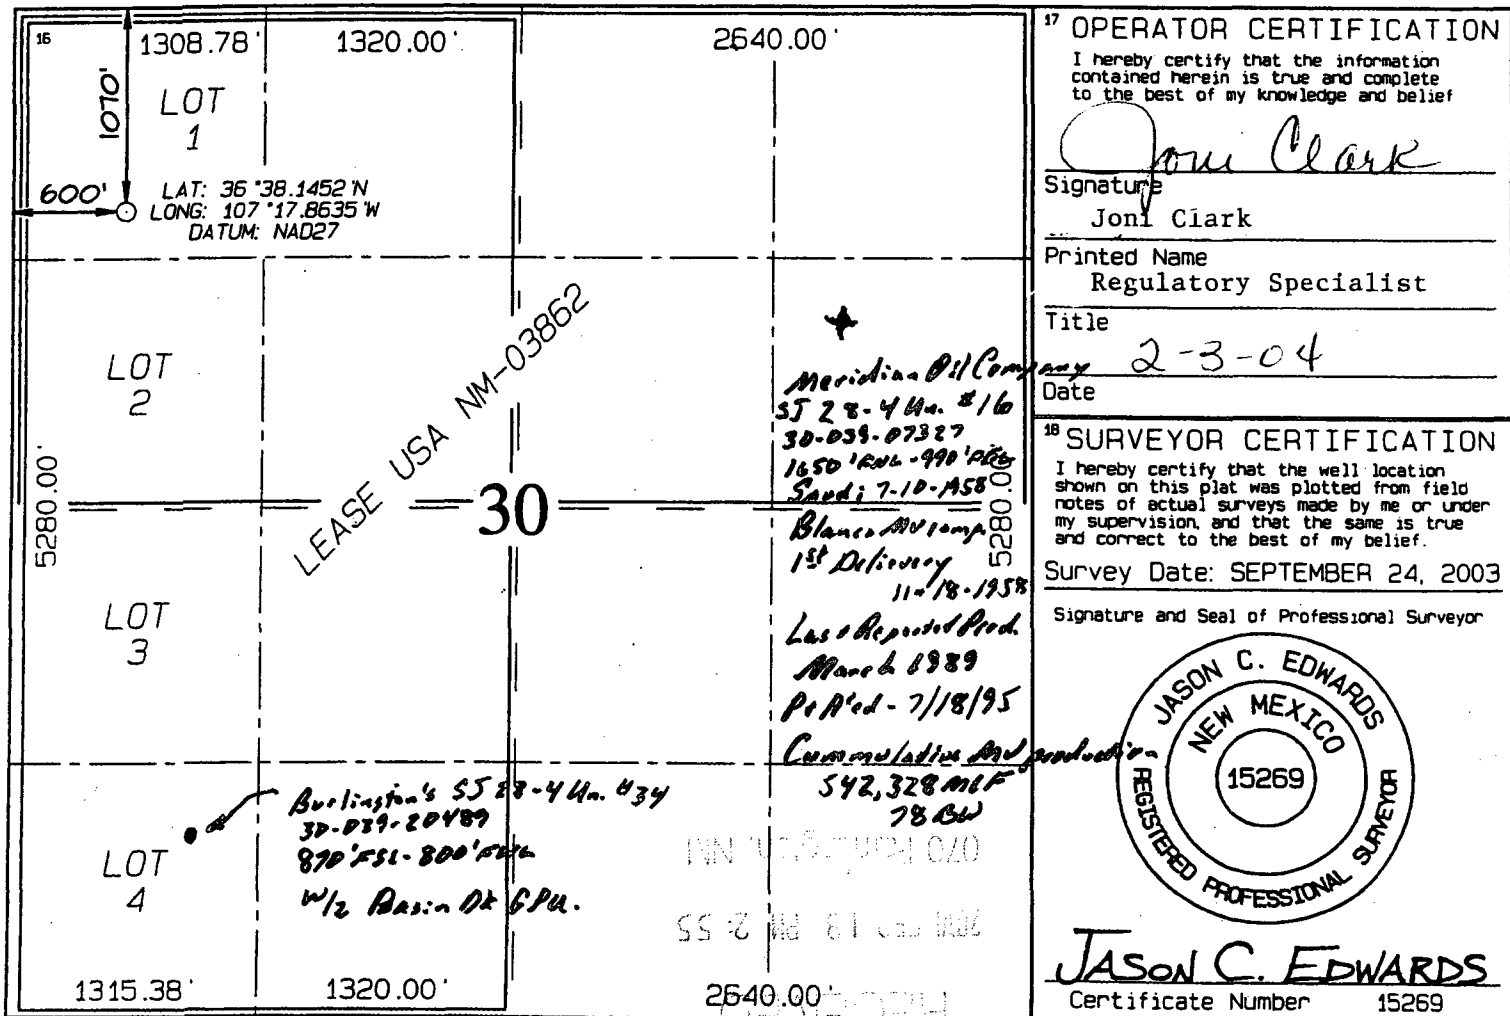 16
1308.78'
1320.00'
2640.00'
1070'
LOT
1
600'
LAT: 36°38.1452'N
LONG: 107°17.8635'W
DATUM: NAD27
LOT
2
LEASE USA NM-03862
5280.00'
30
5280.00'
Meridian Oil Company
SJ 28-4 Un. #16
30-039-07327
1650'FNL-990'FEL
Spud: 7-10-1958
Blanco MV comp.
1st Delivery
11-18-1958
Last Reported Prod.
March 1989
P&A'ed - 7/18/95
Cummulative MV production
542,328 MCF
78 BW
LOT
3
Burlington's SJ 28-4 Un. #34
30-039-20489
890'FSL-800'FWL
W/2 Basin Dk GPU.
LOT
4
1315.38'
1320.00'
2640.00'
17 OPERATOR CERTIFICATION
I hereby certify that the information
contained herein is true and complete
to the best of my knowledge and belief
Joni Clark
Signature
Joni Clark
Printed Name
Regulatory Specialist
Title
2-3-04
Date
18 SURVEYOR CERTIFICATION
I hereby certify that the well location
shown on this plat was plotted from field
notes of actual surveys made by me or under
my supervision, and that the same is true
and correct to the best of my belief.
Survey Date: SEPTEMBER 24, 2003
Signature and Seal of Professional Surveyor
JASON C. EDWARDS
NEW MEXICO
15269
REGISTERED PROFESSIONAL SURVEYOR
JASON C. EDWARDS
Certificate Number 15269